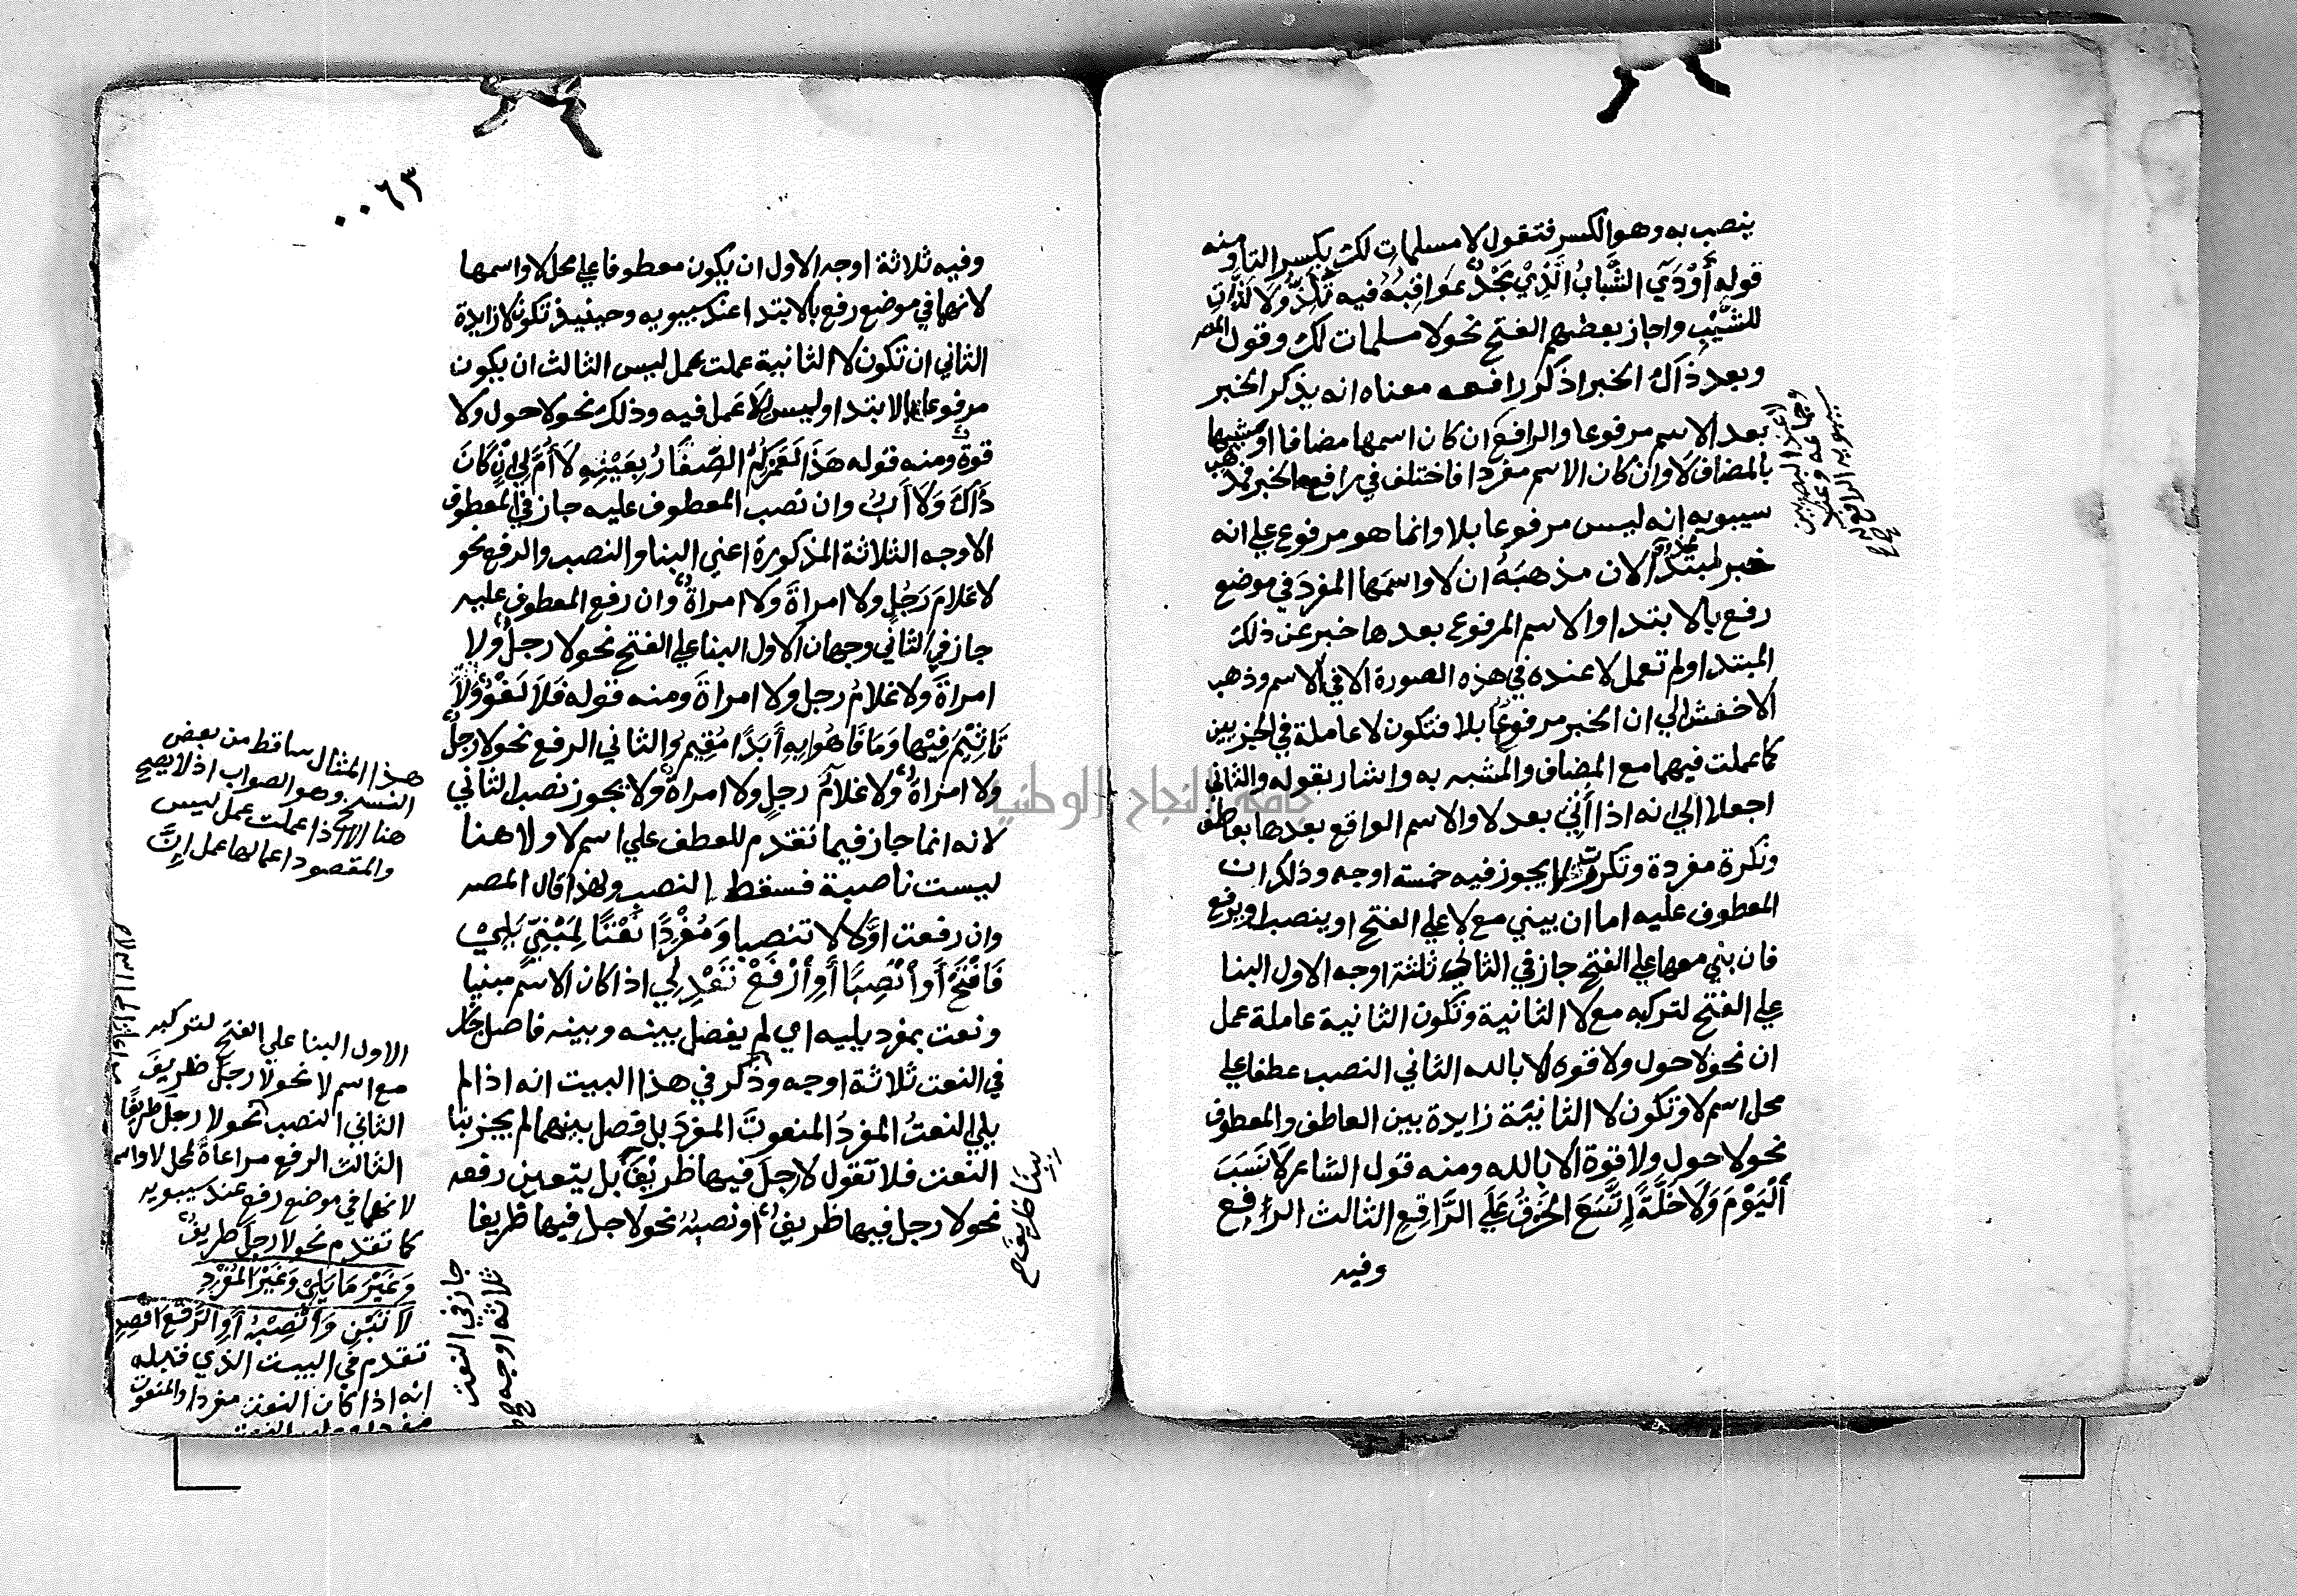 ينصب به وهو الكسر فتقول لا مسلمات لك بكسر التا ومنه
قوله أَوْدَي الشَّبَابُ الَّذِيْ مَجْدٌ عَوَاقِبُهُ فيه نَلَذُّ وَلَا لَذَّاتِ
للشَّيْبِ واجاز بعضهم الفتح نحو لا مسلمات لك وقول المص
وبعد ذاك الخبر اذكر رافعه معناه انه يذكر الخبر
بعد الاسم مرفوعا والرافع ان كان اسمها مضافا او مشبها
بالمضاف لا وان كان الاسم مفردا فاختلف في رافع الخبر فمذهب
سيبويه انه ليس مرفوعا بلا وانما هو مرفوع علي انه
خبر لمبتدا لان مذهبه ان لا واسمها المفرد في موضع
رفع بالابتدا والاسم المرفوع بعدها خبر عن ذلك
المبتدا ولم تعمل لا عنده في هذه الصورة الا في الاسم وذهب
الاخفش الي ان الخبر مرفوع بلا فتكون لا عاملة في الجزيين
كما عملت فيهما مع المضاف والمشبه به واشار بقوله والثاني
اجعلا الي انه اذا أُتي بعد لا والاسم الواقع بعدها بعاطف
ونكرة مفردة وتكررت لا يجوز فيه خمسة اوجه وذلك ان
المعطوف عليه اما ان يبني مع لا علي الفتح او ينصب او يرفع
فان بني معها علي الفتح جاز في الثاني ثلثة اوجه الاول البنا
علي الفتح لتركبه مع لا الثانية وتكون الثانية عاملة عمل
ان نحو لا حول ولا قوة الا بالله الثاني النصب عطفا علي
محل اسم لا وتكون لا الثانية زايدة بين العاطف والمعطوف
نحو لا حول ولا قوة الا بالله ومنه قول الشاعر لَا نَسَبَ
أَلْيَوْمَ وَلَا خُلَّةً إِتَّسَعَ الخَرْقُ عَلَي الرَّاقِعِ الثالث الرفع
وفيه
اعني البصريين
وجماعه وعند
سيبويه الرافع له
٠٠٦٣
وفيه ثلاثة اوجه الاول ان يكون معطوفا علي محل لا واسمها
لانهما في موضع رفع بالابتدا عند سيبويه وحينيذ تكون لا زايدة
الثاني ان تكون لا الثانية عملت عمل ليس الثالث ان يكون
مرفوعا بالابتدا وليس للا عمل فيه وذلك نحو لا حول ولا
قوةٌ ومنه قوله هَذَا لَعَمْرُكُمُ الصَّغَارُ بِعَيْنِهِ لَا أُمَّ لِي إِنْ كَانَ
ذَاكَ وَلَا أَبُ وان نصب المعطوف عليه جاز في المعطوف
الاوجه الثلاثة المذكورة اعني البنا والنصب والرفع نحو
لا غلامَ رَجُلٍ ولا امراةَ ولا امراةً وان رفع المعطوف عليه
جاز في الثاني وجهان الاول البنا علي الفتح نحو لا رجلٌ ولا
امراةَ ولا غلامُ رجلٍ ولا امراةَ ومنه قوله فَلَا لَغْوٌ وَلَا
تَاثِيْمَ فِيْهَا وَمَا فَاهُوا بِهِ أَبَدًا مُقِيْمُ والثاني الرفع نحو لا رجلٌ
ولا امراةٌ ولا غلامُ رجلٍ ولا امراةٌ ولا يجوز نصب الثاني
لانه انما جاز فيما تقدم للعطف علي اسم لا ولا هنا
ليست ناصبة فسقط النصب ولهذا قال المصـ
وان رفعت اوَّلا لا تنصبا وَمُفْرَدًا نَعْتًا لِمَبْنِيٍّ يَلِيْ
فَافْتَحْ أَوِ أْنْصِبًا أَوِ أْرْفَعْ تَعْدِلِي اذا كان الاسم مبنيا
ونعت بمفرد يليه اي لم يفصل بينه وبينه فاصل جاز
في النعت ثلاثة اوجه وذكر في هذا البيت انه اذا لم
يلي النعتُ المفردُ المنعوتَ المفردَ بل فصل بينهما لم يجز بنا
النعت فلا تقول لا رجلَ فيها ظريفَ بل يتعين رفعه
نحو لا رجل فيها ظريفٌ او نصبُهُ نحو لا رجل فيها ظريفا
هذا المثال ساقط من بعض
النسخ وهو الصواب اذ لا يصح
هنا الا اذا عملت عمل ليس
والمقصود اعمالها عمل إِنَّ
الاول البنا علي الفتح لتركبه
مع اسم لا نحو لا رجلَ ظريفَ
الثاني النصب نحو لا رجلَ ظريفًا
الثالث الرفع مراعاةً لمحل لا واسمها
لانهما في موضع رفع عند سيبويه
كما تقدم نحو لا رجلَ ظريفٌ
وَغَيْرَ مَا يَلِيْ وَغَيْرَ المُفْرَدِ
لَا تَبْنِ وَانْصِبْهُ أَوِ الرَّفْعَ اقْصِدِ
تقدم في البيت الذي قبله
انه اذا كان النعت مفردا والمنعوت
جاز في النعت
ثلاثه اوجه
جامعة النجاح الوطنية